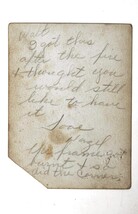 Walt
I got this
after the fire
I thought you
would still
like to have
it
Love
the frame got
burnt & so
did the corner.